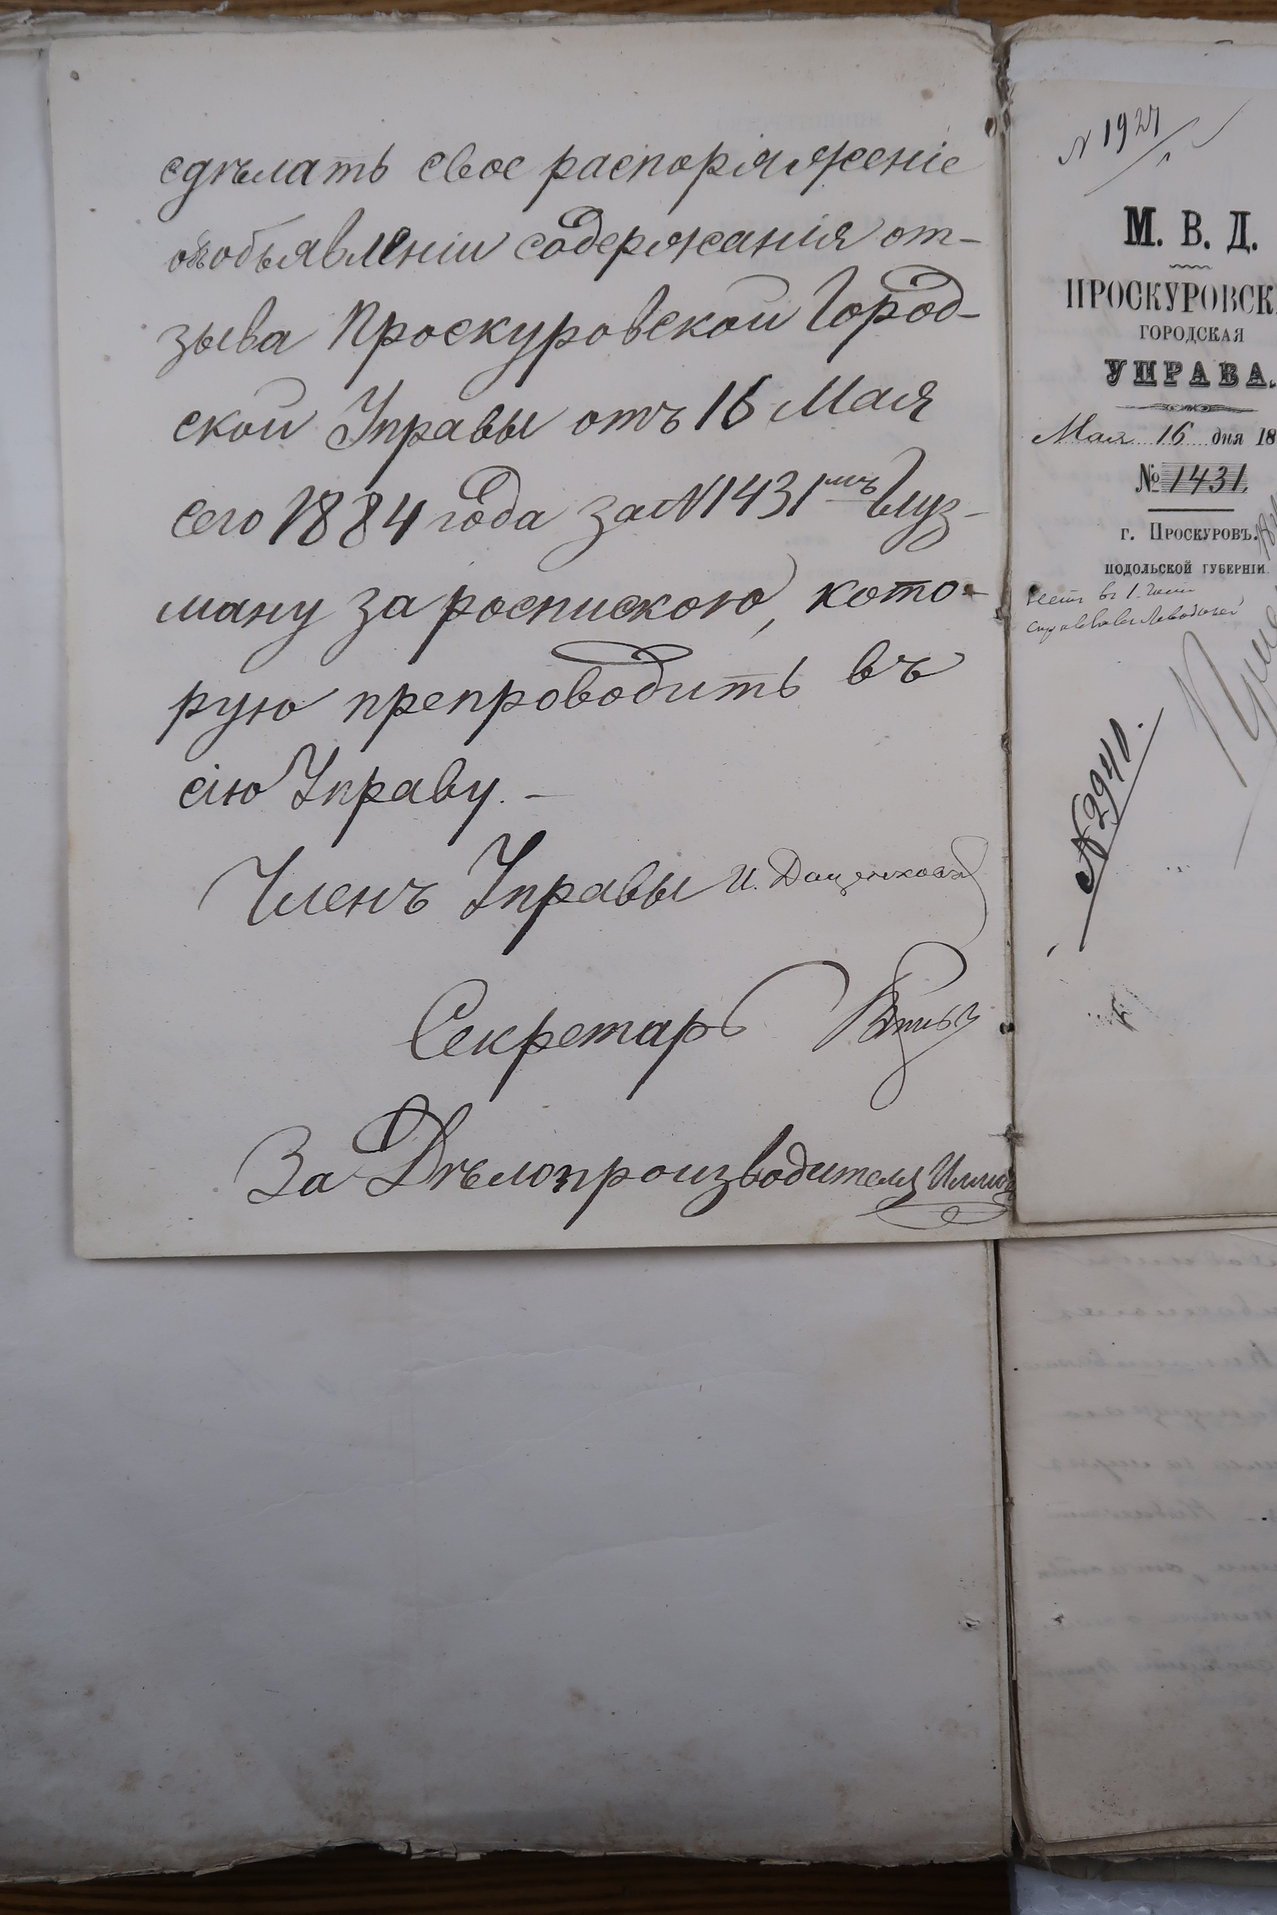 сдѣлать свое распоряженіе
объ объявленіи содержанія от-
зыва Проскуровской Город-
ской Управы отъ 16 Мая
сего 1884 года за № 1431мъ Глуз-
ману за роспискою, кото-
рую препроводить въ
сію Управу. –
Членъ Управы И. Даценковъ
Секретарь
За Дѣлопроизводителя
N 1927
М. В. Д.
ПРОСКУРОВСК
ГОРОДСКАЯ
УПРАВА.
Мая 16 дня 18
№ 1431.
г. Проскуровъ.
ПОДОЛЬСКОЙ ГУБЕРНІИ.
N 2940.